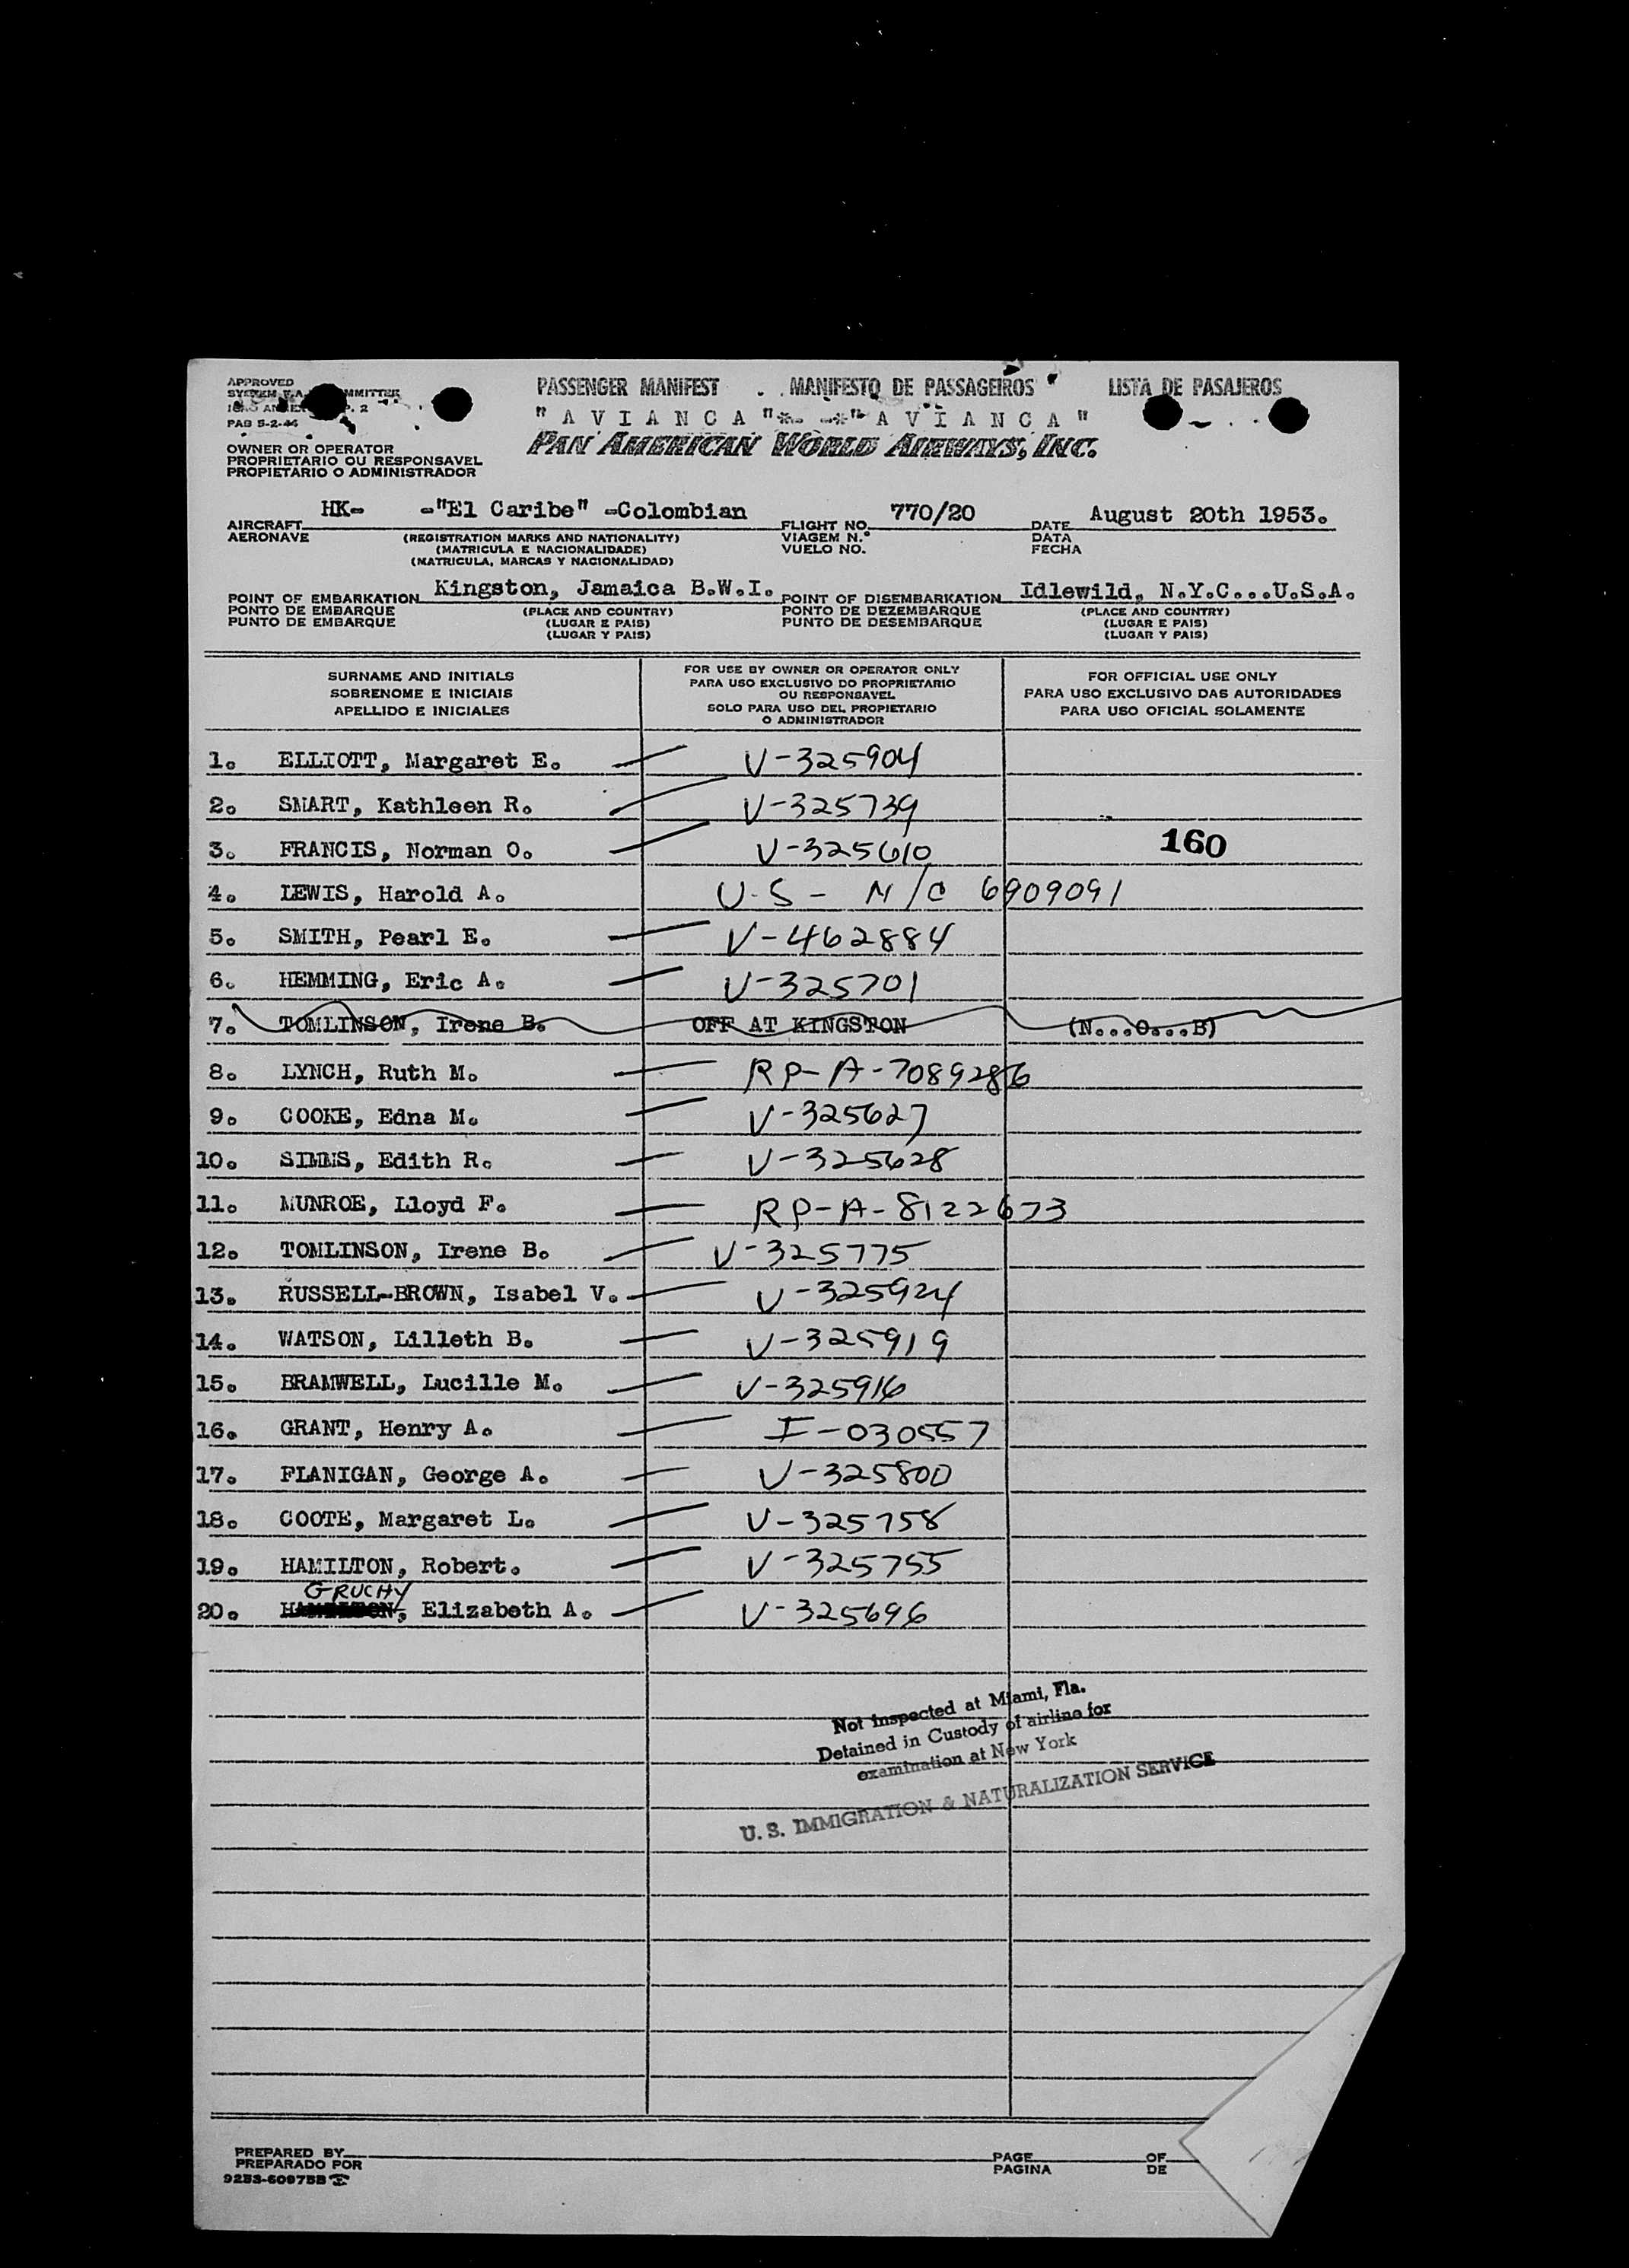 APPROVED
PASSENGER MANIFEST . . MANIFESTO DE PASSAGEIROS LISTA DE PASAJEROS
PAB 5-2-44
"A V I A N C A"*- -*"A V I A N C A"
OWNER OR OPERATOR
PROPRIETARIO OU RESPONSAVEL
PROPIETARIO O ADMINISTRADOR
PAN AMERICAN WORLD AIRWAYS, INC.
HK- -"El Caribe" -Colombian 770/20 August 20th 1953.
AIRCRAFT FLIGHT NO. DATE
AERONAVE (REGISTRATION MARKS AND NATIONALITY) VIAGEM N.° DATA
(MATRICULA E NACIONALIDADE) VUELO NO. FECHA
(MATRICULA, MARCAS Y NACIONALIDAD)
Kingston, Jamaica B.W.I. Idlewild, N.Y.C...U.S.A.
POINT OF EMBARKATION POINT OF DISEMBARKATION
PONTO DE EMBARQUE (PLACE AND COUNTRY) PONTO DE DEZEMBARQUE (PLACE AND COUNTRY)
PUNTO DE EMBARQUE (LUGAR E PAIS) PUNTO DE DESEMBARQUE (LUGAR E PAIS)
(LUGAR Y PAIS) (LUGAR Y PAIS)
SURNAME AND INITIALS
SOBRENOME E INICIAIS
APELLIDO E INICIALES
FOR USE BY OWNER OR OPERATOR ONLY
PARA USO EXCLUSIVO DO PROPRIETARIO
OU RESPONSAVEL
SOLO PARA USO DEL PROPIETARIO
O ADMINISTRADOR
FOR OFFICIAL USE ONLY
PARA USO EXCLUSIVO DAS AUTORIDADES
PARA USO OFICIAL SOLAMENTE
1. ELLIOTT, Margaret E. V-325904
2. SMART, Kathleen R. V-325739
3. FRANCIS, Norman O. V-325610 160
4. LEWIS, Harold A. U.S- N/C 6909091
5. SMITH, Pearl E. V-462884
6. HEMMING, Eric A. V-325701
7. TOMLINSON, Irene B. OFF AT KINGSTON (N...O...B)
8. LYNCH, Ruth M. RP-A-7089286
9. COOKE, Edna M. V-325627
10. SIMMS, Edith R. V-325628
11. MUNROE, Lloyd F. RP-A-8122673
12. TOMLINSON, Irene B. V-325775
13. RUSSELL-BROWN, Isabel V. V-325924
14. WATSON, Lilleth B. V-325919
15. BRAMWELL, Lucille M. V-325916
16. GRANT, Henry A. I-030557
17. FLANIGAN, George A. V-325800
18. COOTE, Margaret L. V-325758
19. HAMILTON, Robert. V-325755
GRUCHY
20. HAMILTON, Elizabeth A. V-325696
Not inspected at Miami, Fla.
Detained in Custody of airline for
examination at New York
U. S. IMMIGRATION & NATURALIZATION SERVICE
PREPARED BY
PREPARADO POR
PAGE OF
PAGINA DE